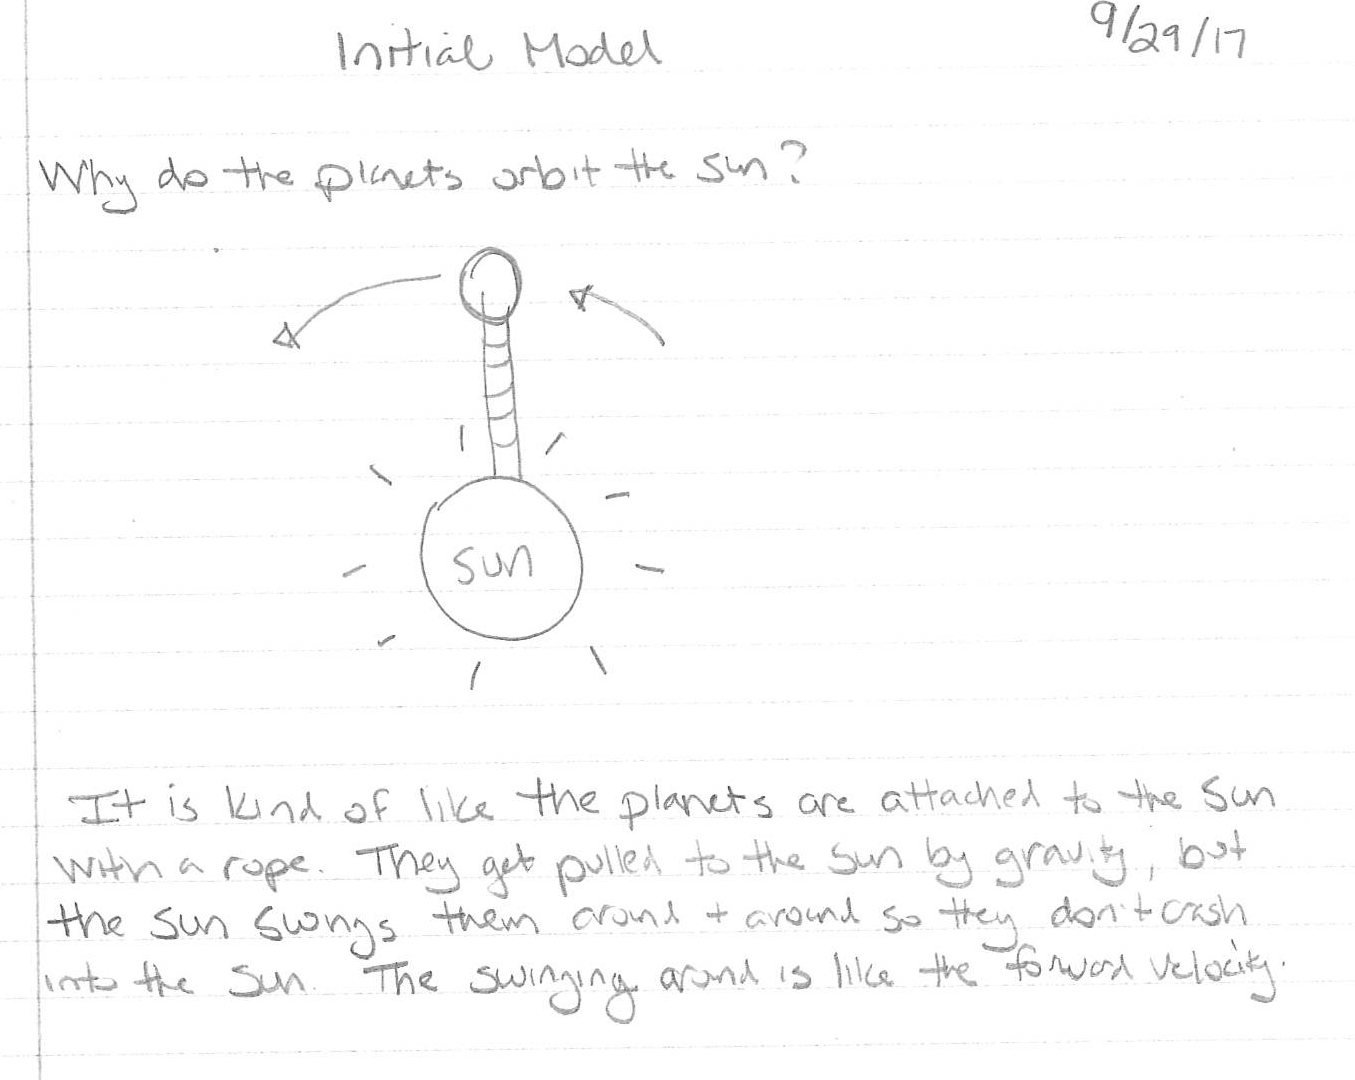 Initial Model
9/29/17
Why do the planets orbit the sun?
sun
It is kind of like the planets are attached to the sun
with a rope. They get pulled to the sun by gravity, but
the sun swings them around + around so they don't crash
into the sun. The swinging around is like the forward velocity.